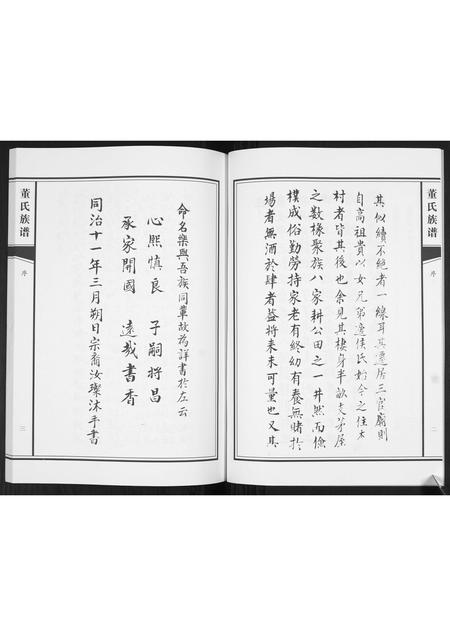 董氏族谱
序
二
其似續不絶者一線耳其遷居三官廟則
自高祖貴以女兄弟適侯氏始今之住太
村者皆其後也余見其棲身半畝支茅屋
之數椽聚族八家耕公田之一井然而儉
樸成俗勤勞持家老有終幼有養無賭於
場者無酒於肆者益將來未可量也又其
命名樂與吾族同輩故為詳書於左云
心熙慎良 子嗣將昌
承家開國 遠哉書香
同治十一年三月朔日宗裔汝璨沐手書
董氏族谱
序
三